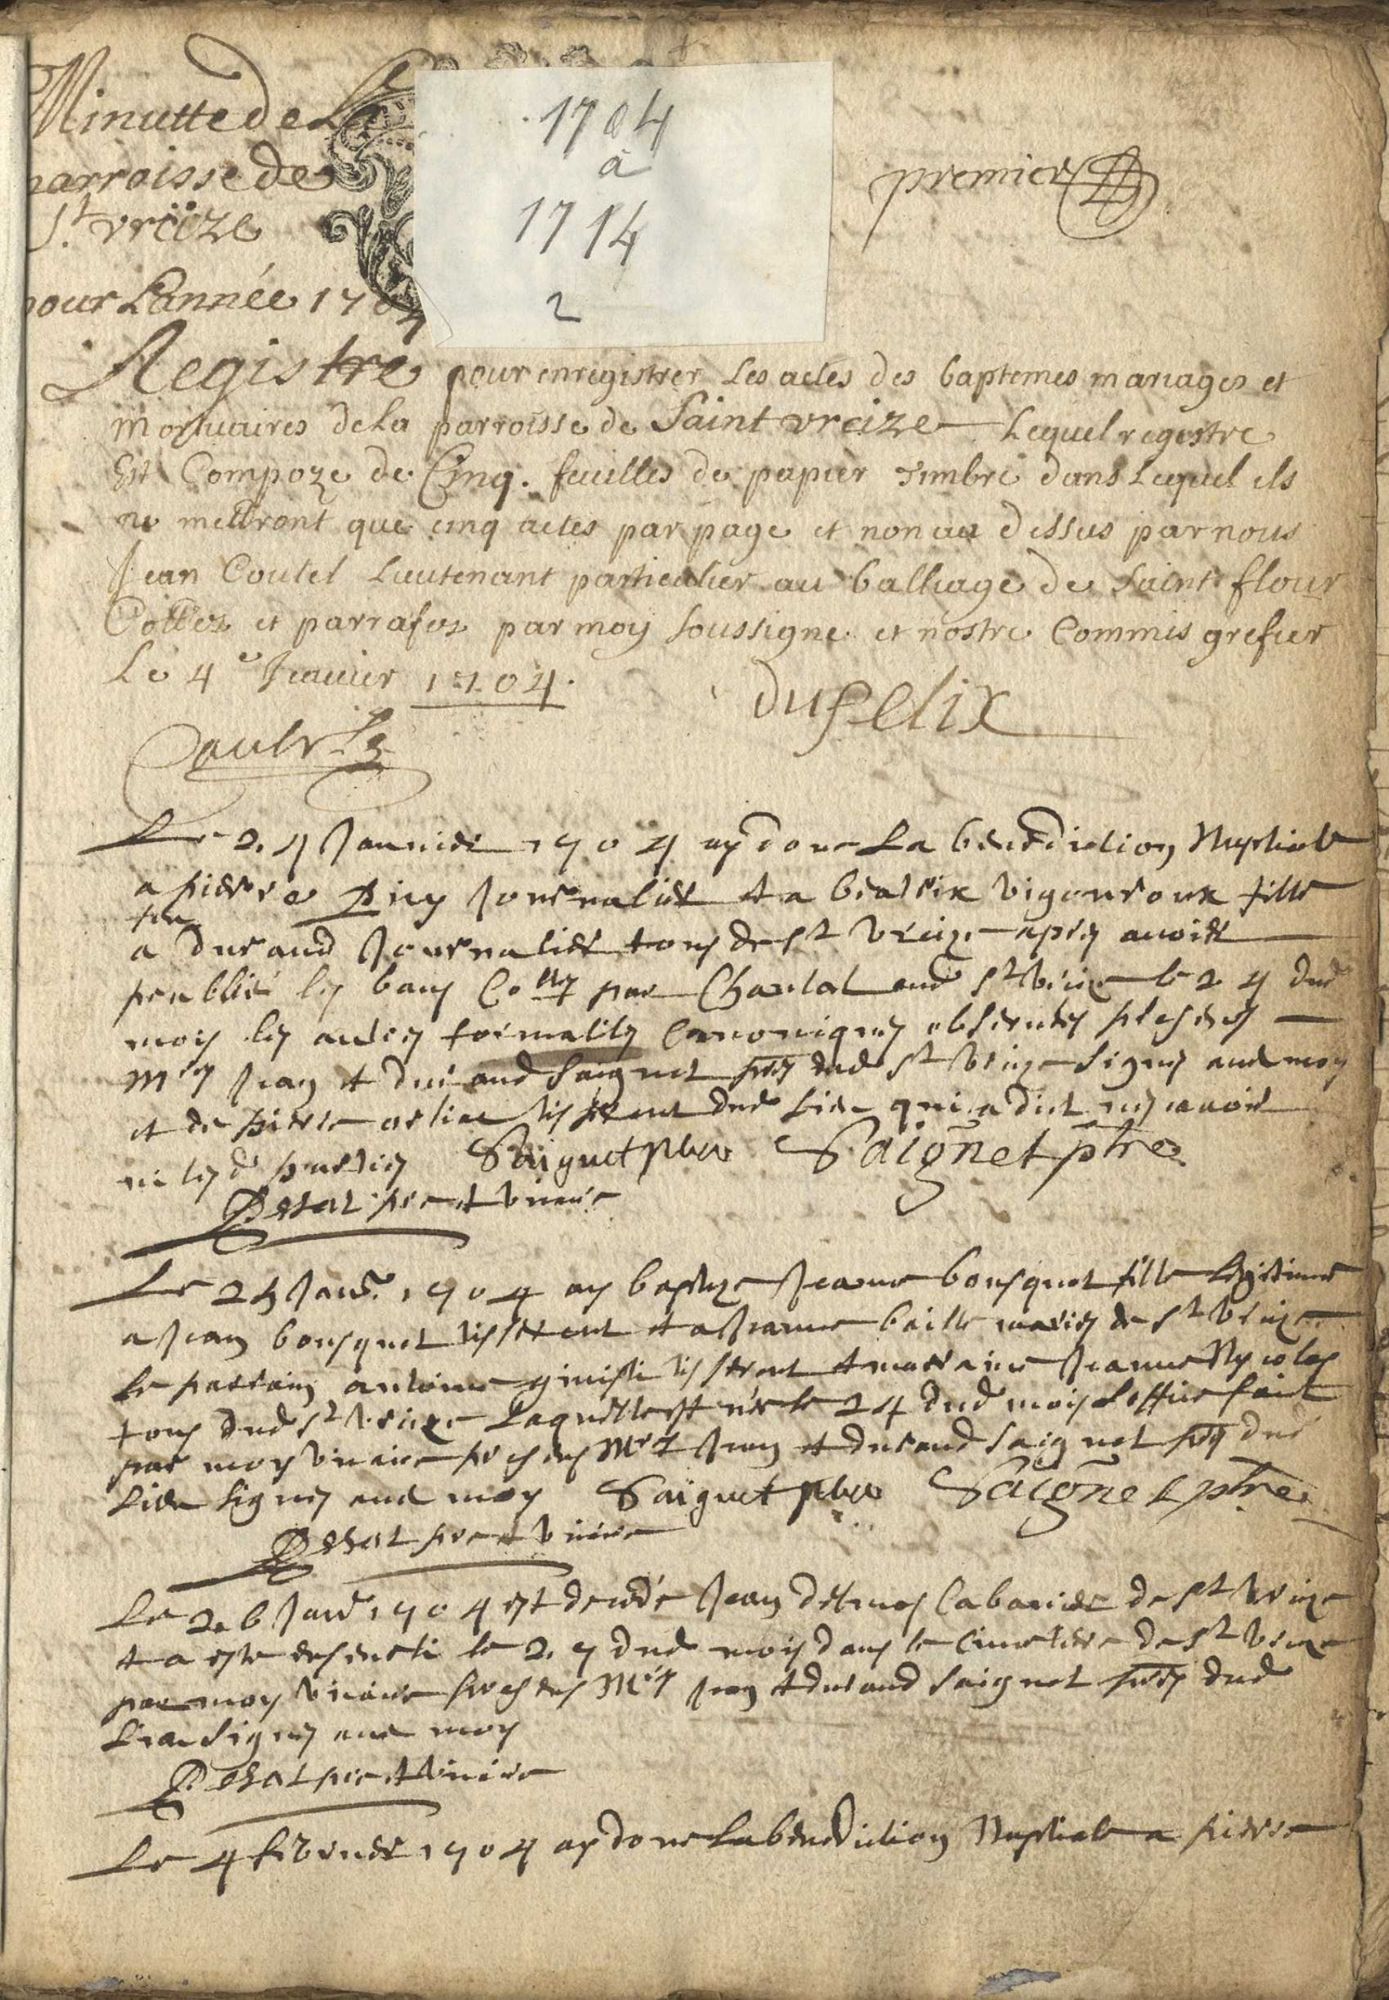 Minutte de La
parroisse de
St. vrcize
pour L'année 1704
1704
a
1714
2
premier
Registre pour enregistrer Les actes des baptemes mariages et
Mortuaires de La parroisse de Saint vrcize Lequel regestre
Est Compoze de Cinq. feuilles de papier timbré dans Lequel ils
ne mettront que cinq actes par page et non au dessus par nous
Jean Coutel Lieutenant particulier au balliage de Saint flour
Cottez et parrafez par moy soussigne et nostre Commis grefier
Le 4e Janvier 1704.
dufelix
Le 24 Januier 1704 ay done La benediction Nuptiale
a pierre journalier et a beatrix vigouroux fille
feu
a durand journalier tous de St vrcize apres auoir
peublié les bans par Chantal aud St vrcize le 24 dud
mois les autres formalités canoniques obseruées presens
Mrs Jean et durand Saignet pres dud St vrcize signes aud moy
et de pierre tisserant dud lieu qui a dict ne scauoir
ni lesd parties Saignet pbre Saignet ptre
pre et vicaire
Le 25 Janr. 1704 ay baptize Jeanne bousquet fille legitime
a Jean bousquet tisserent et a Jeanne baille mariés de St vrcize
le parrain antoine tisserent et marraine Jeanne
tous dud St vrcize Laquelle est née le 24 dud mois Loffice faict
par moy vicaire presens Mrs Jean et durand Saignet pres dud
Lieu signes aud moy Saignet pbre Saignet ptre
pre et vicaire
Le 26 Janr 1704 est decedé Jean cabarier de St vrcize
et a este enseueli le 27 dud mois dans le cimetiere de St vrcize
par moy vicaire presens Mrs Jean et durand Saignet pres dud
Lieu signes aud moy
pre et vicaire
Le 4 feburier 1704 ay done La benediction Nuptiale a pierre